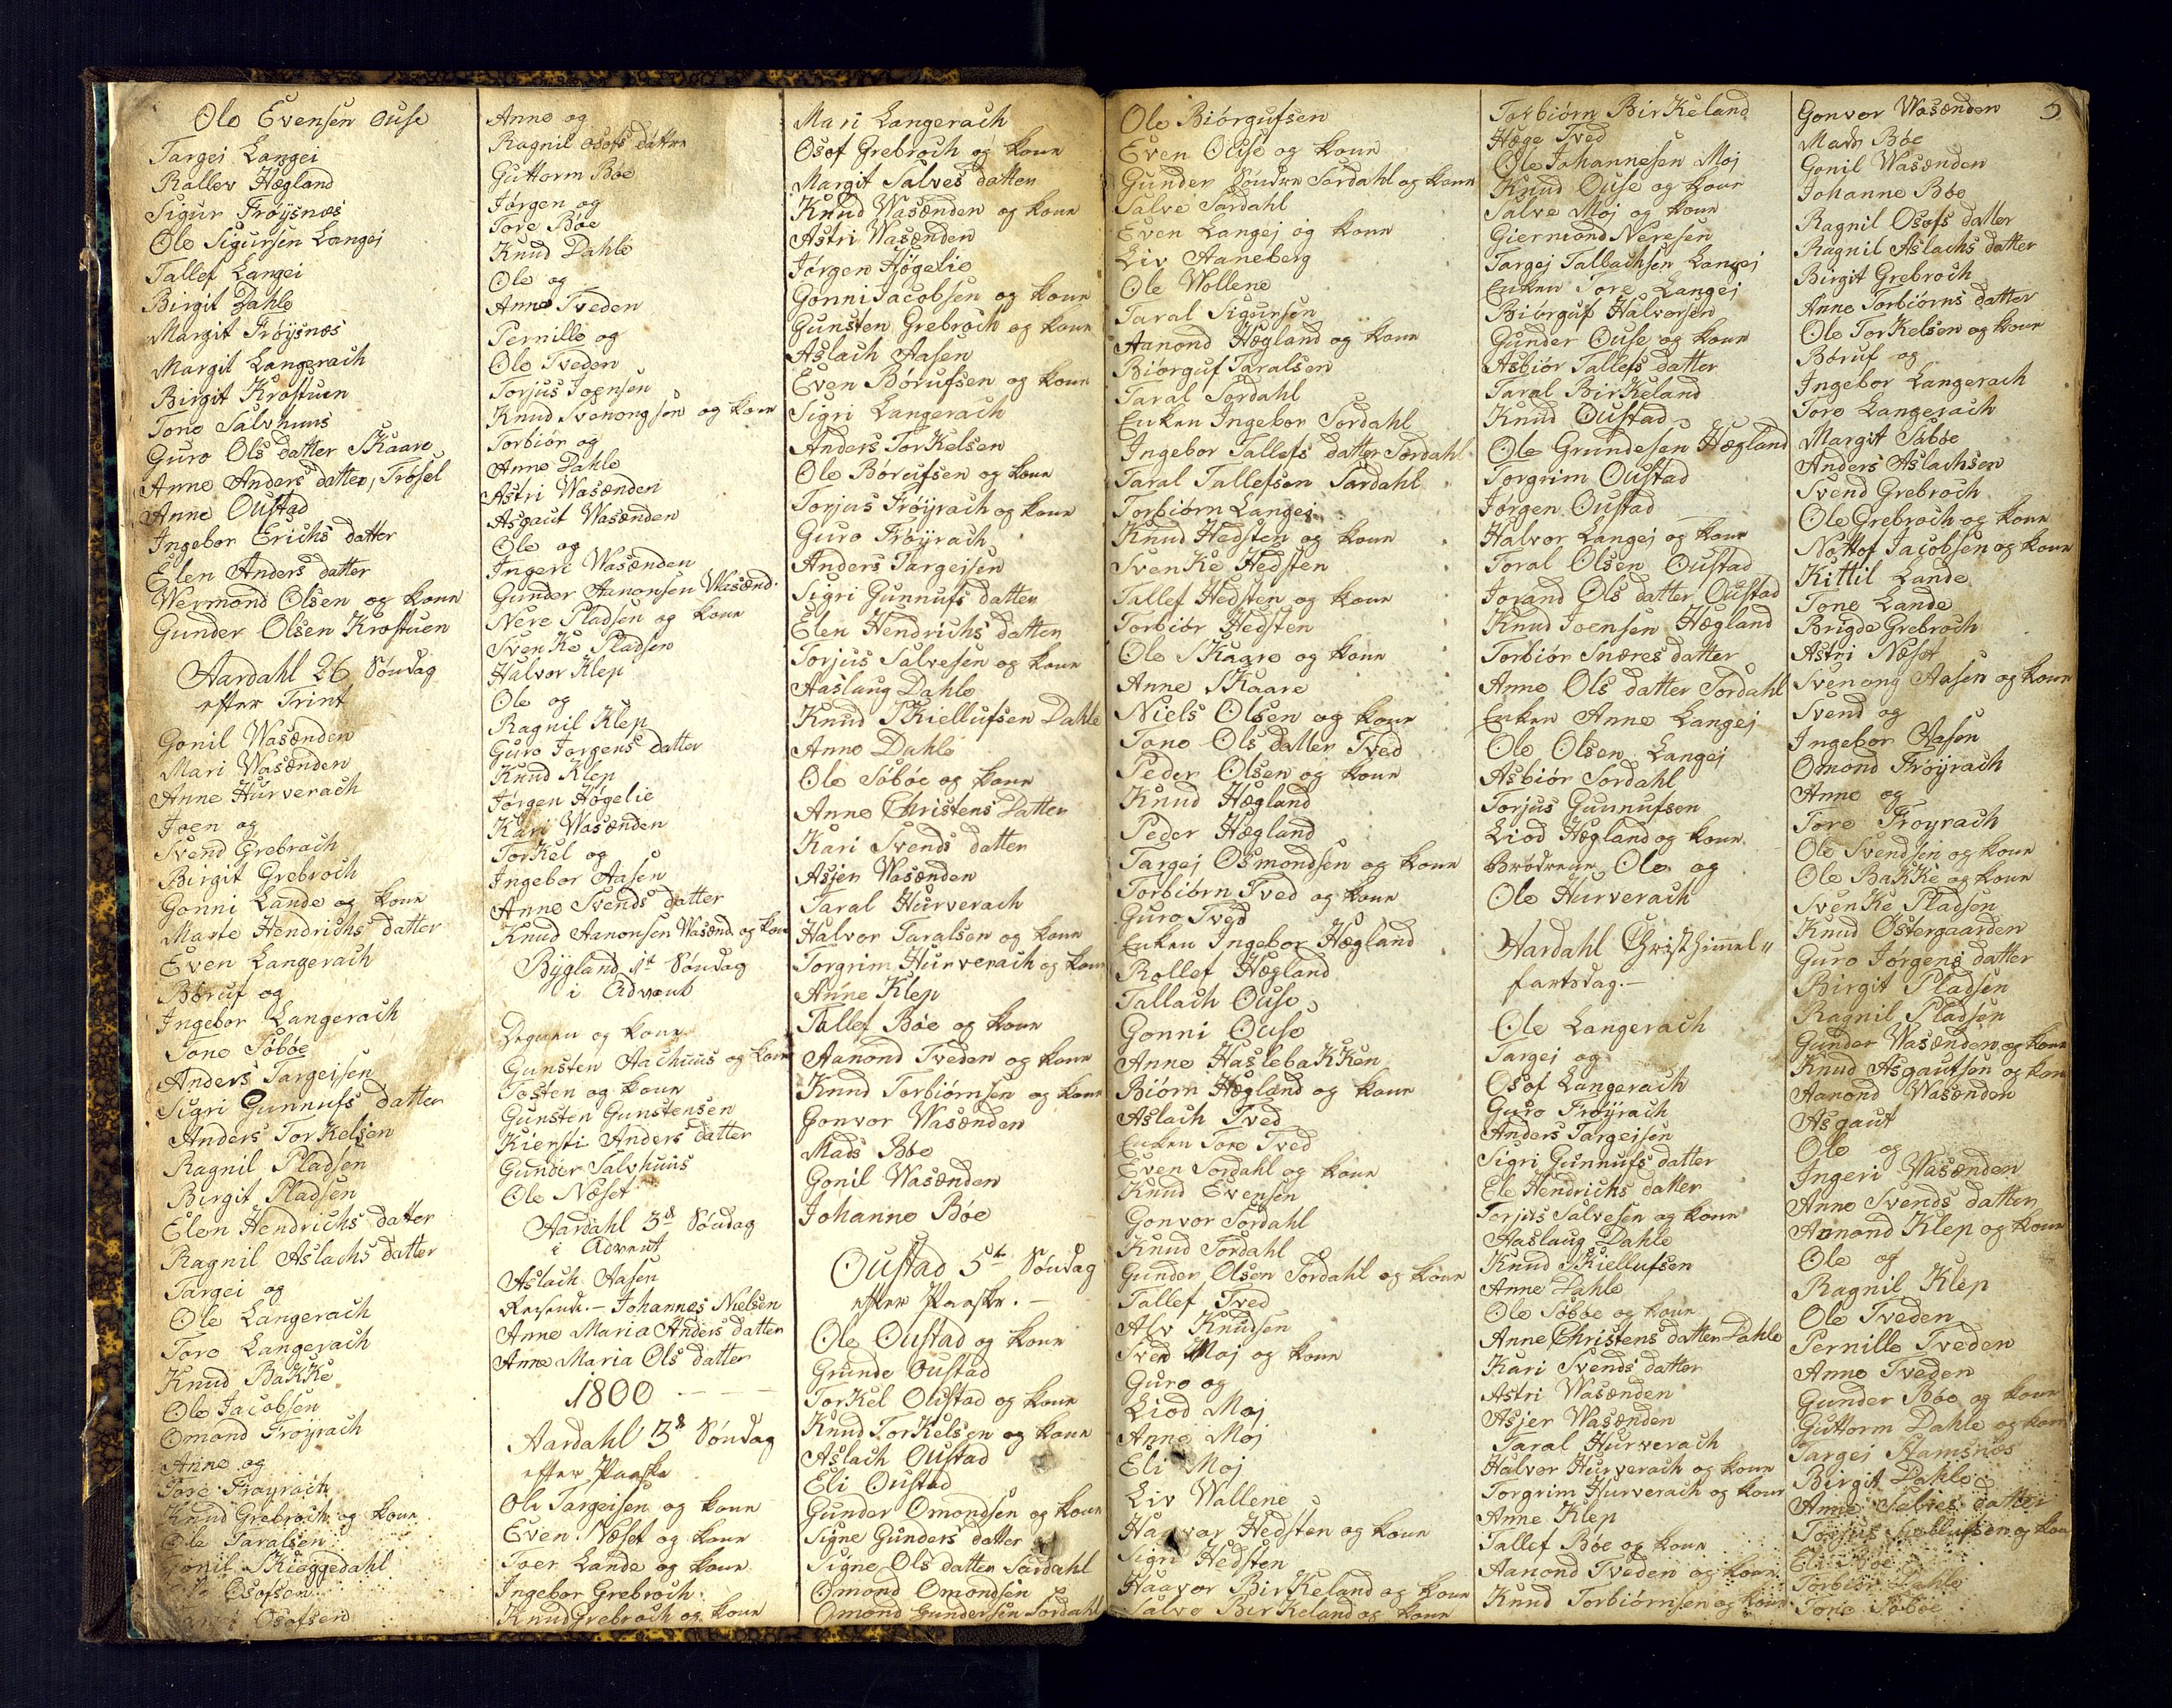 Ole Evensen Ouse
Targei Langei
Rallev Hægland
Sigur Frøysnæs
Ole Sigursen Langei
Tallef Langei
Birgit Dahle
Margit Frøysnæs
Margit Langerach
Birgit Krostuen
Tone Salvhuus
Guro Ols datter Skaare
Anne Anders datter, Trøsel
Anne Oustad
Ingebor Erichs datter
Elen Anders datter
Wermond Olsen og kone
Gunder Olsen Krostuen
Aardahl 26 Søndag
efter Trint
Gonil Wasænden
Mari Wasænden
Anne Hurverach
Joen og
Svend Grebroch
Birgit Grebroch
Gonni Lande og kone
Marte Hendrichs datter
Even Langerach
Børuf og
Ingebor Langerach
Tone Søbøe
Anders Targeisen
Sigri Gunnufs datter
Anders Torkelsen
Ragnil Pladsen
Birgit Pladsen
Elen Hendrichs datter
Ragnil Aslachs datter
Targei og
Ole Langerach
Tore Langerach
Knud Bakke
Ole Jacobsen
Omond Frøyrach
Anne og
Tore Frøyrach
Knud Grebroch og kone
Ole Taralsen
Gonil Skieggedahl
Osofsen
Osofsen
Anne og
Ragnil Osofs datter
Guttorm Bøe
Jørgen og
Tore Bøe
Knud Dahle
Ole og
Anne Tveden
Pernille og
Ole Tveden
Torjus Joensen
Knud Svenongsen og kone
Torbiør og
Anne Dahle
Astri Wasænden
Asgaut Wasænden
Ole og
Ingeri Wasænden
Gunder Aanonsen Wasænd.
Nere Pladsen og kone
Svenke Pladsen
Halvor Klep
Ole og
Ragnil Klep
Guro Jørgens datter
Knud Klep
Jørgen Høgelie
Kari Wasænden
Torkel og
Ingebor Aasen
Anne Svends datter
Knud Aanonsen Wasænd. og kone
Bygland 1st Søndag
i Advent
Degnen og kone
Gunsten Aachuus og kone
Tosten og kone
Gunsten Gunstensen
Kiersti Anders datter
Gunder Salvhuus
Ole Næset
Aardahl 3d Søndag
i Advent
Aslach Aasen
Reisende.- Johannes Nielsen
Anne Maria Anders datter
Anne Maria Ols datter
1800 - - -
Aardahl 3d Søndag
efter Paaske
Ole Targeisen og kone
Even Næset og kone
Toer Lande og kone
Ingebor Grebroch
Knud Grebroch og kone
Mari Langerach
Osof Grebroch og kone
Margit Salves datter
Knud Wasænden og kone
Astri Wasænden
Jørgen Høgelie
Gonni Jacobsen og kone
Gunsten Grebroch og kone
Aslach Aasen
Even Børufsen og kone
Sigri Langerach
Anders Torkelsen
Ole Børeufsen og kone
Torjus Frøyrach og kone
Guro Frøyrach
Anders Targeisen
Sigri Gunnufs datter
Elen Hendrichs datter
Torjus Salvesen og kone
Aaslaug Dahle
Knud Skiellufsen Dahle
Anne Dahle
Ole Søbøe og kone
Anne Christens Datter
Kari Svends datter
Asjer Wasænden
Taral Hurverach
Halvor Taralsen og kone
Torgrim Hurverach og kone
Anne Klep
Tallef Bøe og kone
Aanond Tveden og kone
Knud Torbiørnsen og kone
Gonvor Wasænden
Mads Bøe
Gonil Wasænden
Johanne Bøe
Oustad 5te Søndag
efter Paaske. -
Ole Oustad og kone
Grunde Oustad
Torkel Oustad og kone
Knud Torkelsen og kone
Aslach Oustad
Eli Oustad
Gunder Omondsen og kone
Signe Gunders datter
Signe Ols datter Sordahl
Omond Omondsen
Omond Gundersen Sordahl
Ole Biørgufsen
Even Ouse og kone
Gunder Søndre Sordahl og kone
Salve Sordahl
Even Langej og kone
Liv Aaneberg
Ole Wollene
Taral Sigursen
Aanond Hægland og kone
Biørguf Taralsen
Taral Sordahl
Enken Ingebor Sordahl
Ingebor Tallefs datter Sordahl
Taral Tallefsen Sordahl
Torbiørn Langej
Knud Hedsten og kone
Svenke Hedsten
Tallef Hedsten og kone
Torbiør Hedsten
Ole Skaare og kone
Anne Skaare
Niels Olsen og kone
Tone Ols datter Tved
Peder Olsen og kone
Knud Hægland
Peder Hægland
Targej Osmondsen og kone
Torbiørn Tved og kone
Guro Tved
Enken Ingebor Hægland
Rollef Hægland
Tallach Ouse
Gonni Ouse
Anne Haslebakken
Biørn Hægland og kone
Aslach Tved
Enken Tore Tved
Even Sordahl og kone
Knud Evensen
Gonvor Sordahl
Knud Sordahl
Gunder Olsen Sordahl og kone
Tallef Tved
Alv Knudsen
Sven Moj og kone
Guro og
Liod Moj
Anne Moj
Eli Moj
Liv Wallene
Haavor Hedsten og kone
Sigri Hedsten
Haavor Birkeland og kone
Salve Birkeland og kone
Torbiørn Birkeland
Hæge Tved
Ole Johannesen Moj
Knud Ouse og kone
Salve Moj og kone
Giermond Neresen
Targej Tallachsen Langej
Enken Tore Langej
Biørguf Halvorsen
Gunder Ouse og kone
Asbiør Tallefs datter
Taral Birkeland
Knud Oustad
Ole Grundesen Hægland
Torgrim Oustad
Jørgen Oustad
Halvor Langej og kone
Toral Olsen Oustad
Jorand Ols datter Oustad
Knud Joensen Hægland
Torbiør Snæres datter
Anne Ols datter Sordahl
Enken Anne Langej
Ole Olsen Langej
Asbiør Sordahl
Torjus Gunnufsen
Liod Hægland og kone
Brødrene Ole og
Ole Hurverach
Aardahl Christhimmel"
fartsdag.-
Ole Langerach
Targej og
Osof Langerach
Guro Frøyrach
Anders Targeisen
Sigri Gunnufs datter
Ele Hendrichs datter
Torjus Salvesen og kone
Aaslaug Dahle
Knud Skiellufsen
Anne Dahle
Ole Søbøe og kone
Anne Christens datter Dahle
Kari Svends datter
Astri Wasænden
Asjer Wasænden
Taral Hurverach
Halvor Hurverach og kone
Torgrim Hurverach og kone
Anne Klep
Tallef Bøe og kone
Aanond Tveden og kone
Knud Torbiørnsen og kone
5
Gonvor Wasænden
Mads Bøe
Gonil Wasænden
Johanne Bøe
Ragnil Osofs datter
Ragnil Aslachs datter
Birgit Grebroch
Anne Torbiørns datter
Ole Torkelsen og kone
Børuf og
Ingebor Langerach
Tore Langerach
Margit Søbøe
Anders Aslachsen
Svend Grebroch
Ole Grebroch og kone
Nottof Jacobsen og kone
Kittil Lande
Tone Lande
Brigde Grebroch
Astri Næset
Svenong Aasen og kone
Svend og
Ingebor Aasen
Omond Frøyrach
Anne og
Tore Frøyrach
Ole Svendsen og kone
Ole Bakke og kone
Svenke Pladsen
Knud Østergaarden
Guro Jørgens datter
Birgit Pladsen
Ragnil Pladsen
Gunder Wasænden og kone
Knud Asgautsen og kone
Aanond Wasænden
Asgaut
Ole og
Ingeri Wasænden
Anne Svends datter
Aanond Klep og kone
Ole og
Ragnil Klep
Ole Tveden
Pernille Tveden
Anne Tveden
Gunder Bøe og kone
Guttorm Dahle og kone
Targej Stamsnæs
Birgit Dahle
Anne Salves datter
Torjus Skiellufsen og kone
Eli Bøe
Torbiør Dahle
Tone Søbøe